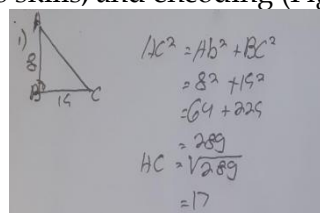 skills, and encoding (Fig
i)
A
8
B
15
C
AC² = Ab² + BC²
= 8² + 15²
= 64 + 225
= 289
AC = √289
= 17